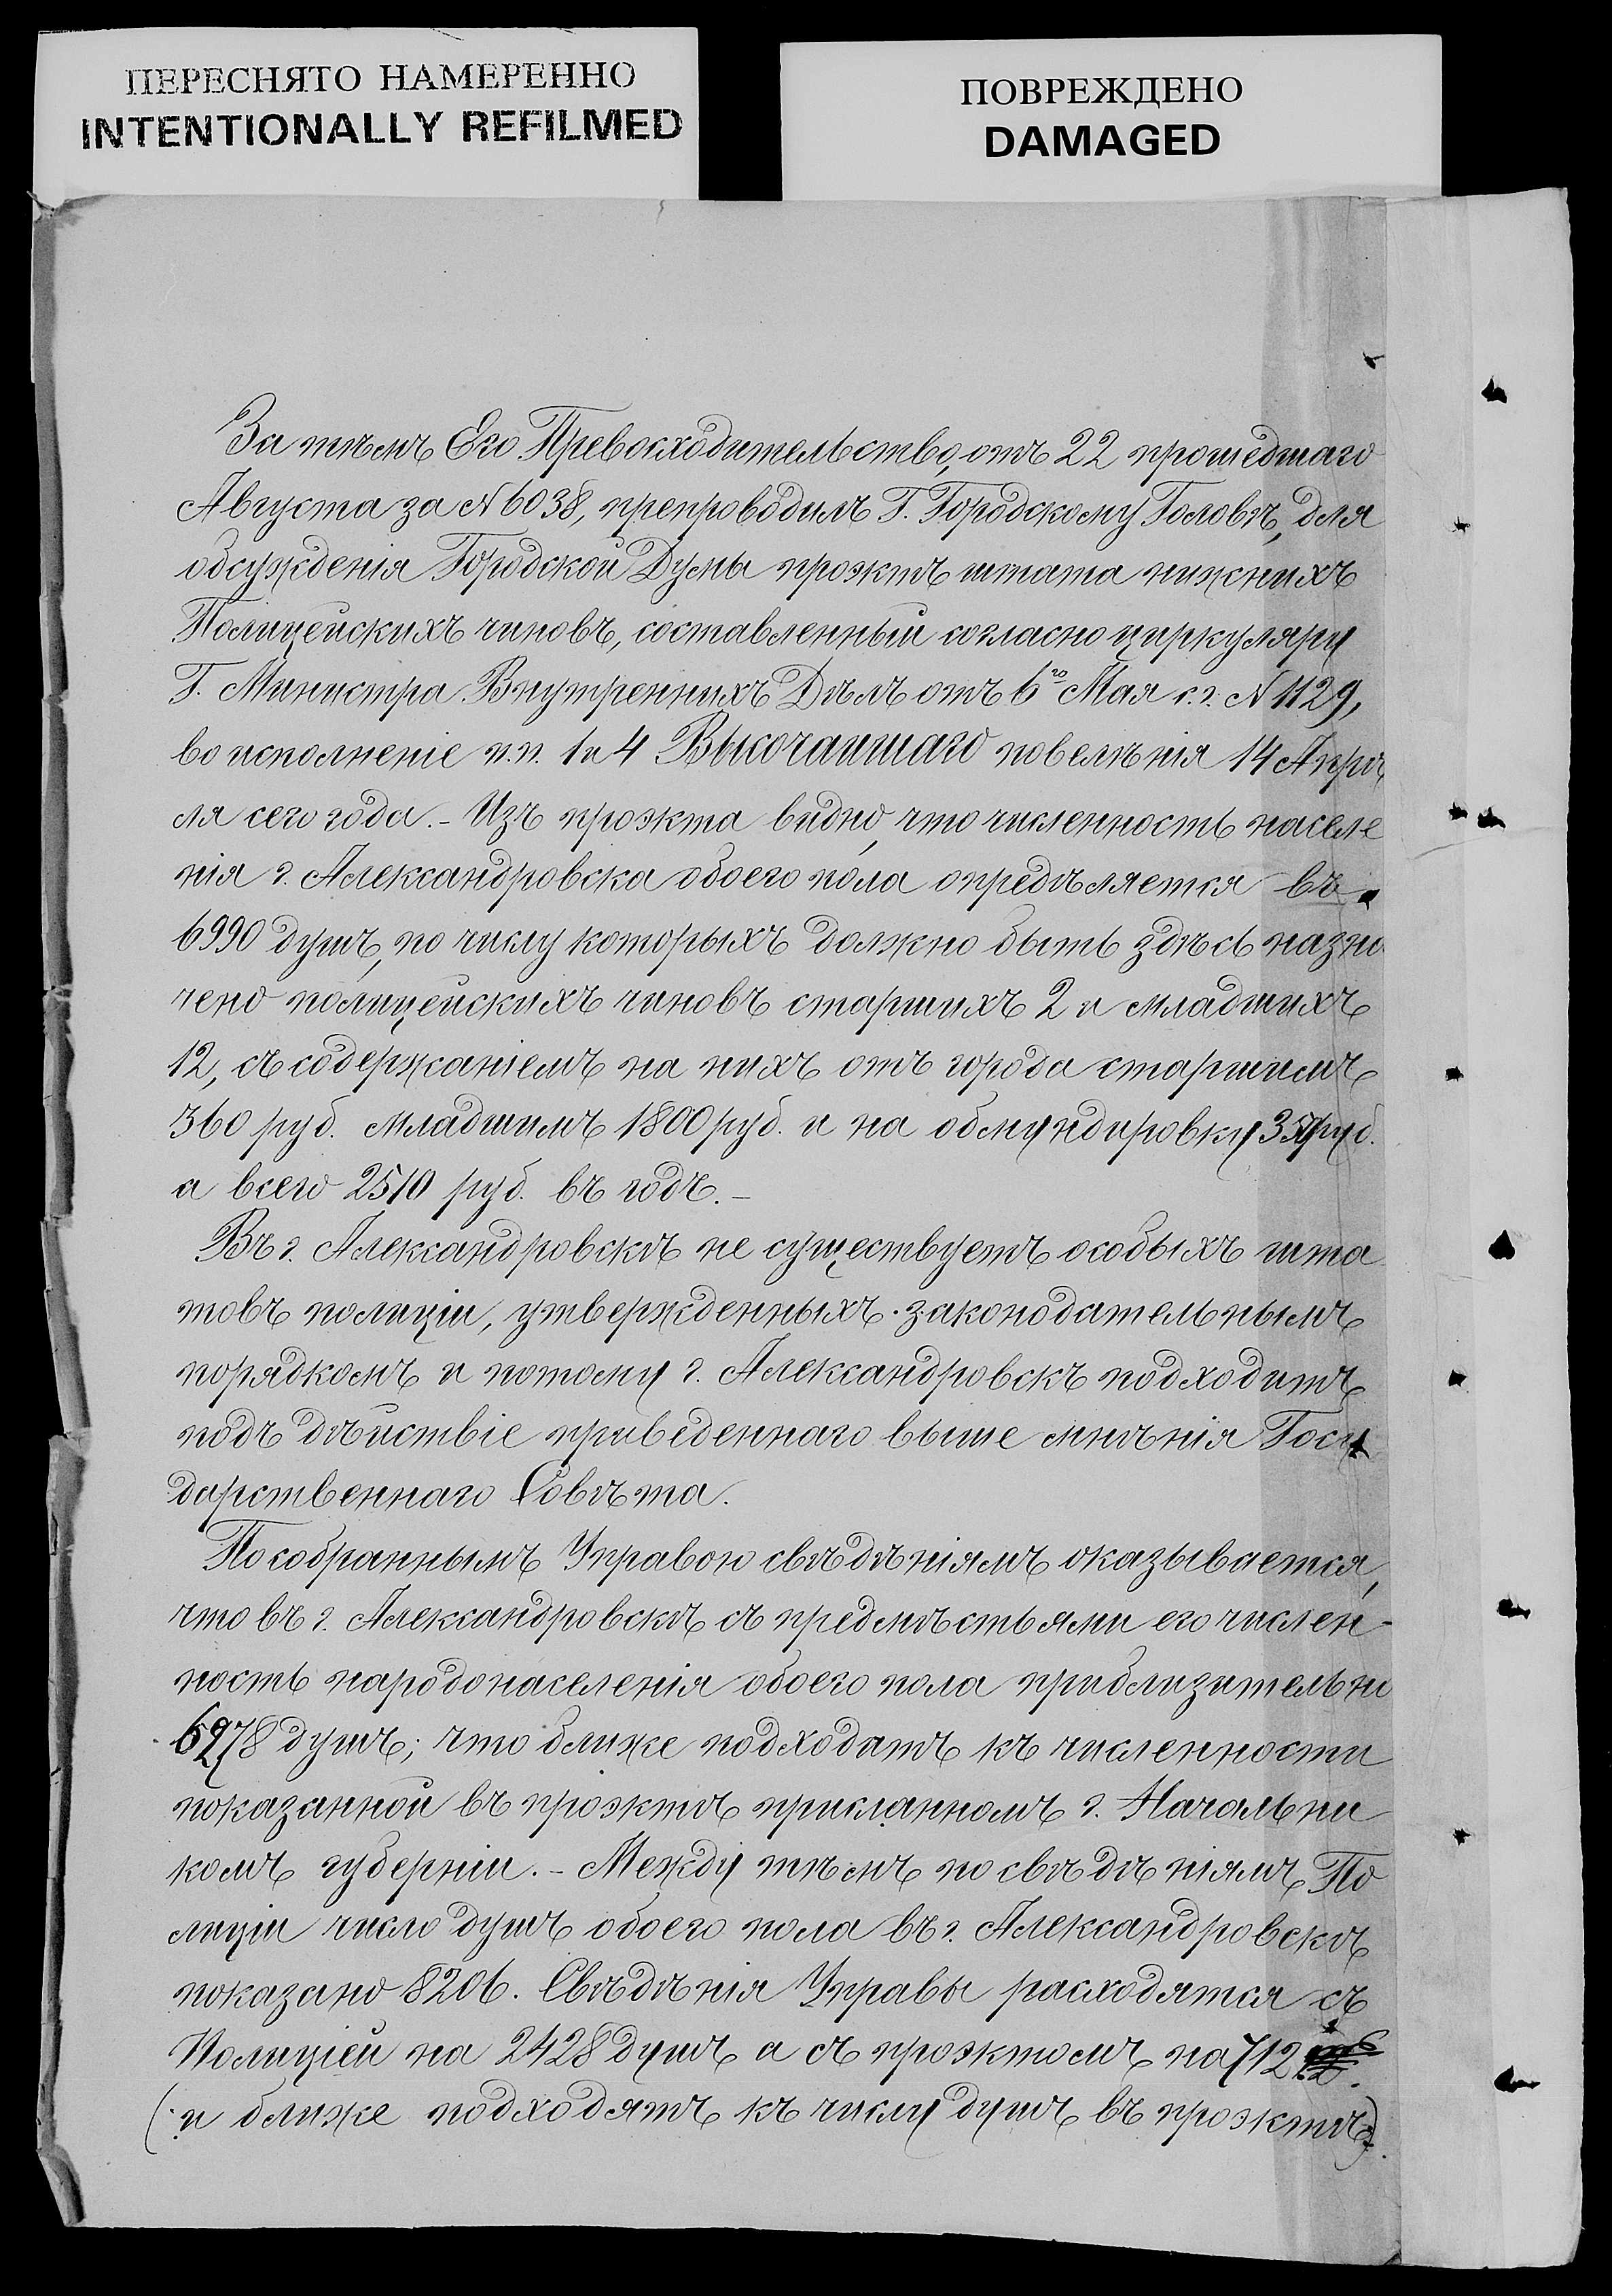 ПЕРЕСНЯТО НАМЕРЕННО
INTENTIONALLY REFILMED
ПОВРЕЖДЕНО
DAMAGED
За тѣмъ Его Превосходительство, отъ 22 прошедшаго
Августа за N 6038, препроводилъ Г. Городскому Головѣ, для
обсужденія Городской Думы проэктъ штата нижнихъ
Полицейскихъ чиновъ, составленный согласно циркуляру
Г. Министра Внутреннихъ Дѣлъ отъ 6го Мая с.г. N 1129,
во исполненіе п.п. 1 и 4 Высочайшаго повелѣнія 14 Апрѣ
ля сего года. - Изъ проэкта видно, что численность населе
нія г. Александровска обоего пола опредѣляется въ
6990 душъ, по числу которыхъ должно быть здѣсь назна
чено полицейскихъ чиновъ старшихъ 2 и младшихъ
12, съ содержаніемъ на нихъ отъ города старшимъ
360 руб. младшимъ 1800 руб. и на обмундировку руб.
а всего 2510 руб. въ годъ. -
Въ г. Александровскѣ не существуетъ особыхъ шта
товъ полиціи, утвержденныхъ законодательнымъ
порядкомъ и потому г. Александровскъ подходитъ
подъ дѣйствіе приведеннаго выше мнѣнія Госу
дарственнаго Совѣта.
По собраннымъ Управою свѣдѣніямъ оказывается,
что въ г. Александровскѣ съ предмѣстьями его числен-
ность народонаселенія обоего пола приблизительно
6278 душъ; что ближе подходатъ къ численности
показанной въ проэктѣ присланномъ г. Начальни
комъ губерніи. - Между тѣмъ по свѣдѣніямъ По
лиціи число душъ обоего пола въ г. Александровскѣ
показано 8206. Свѣдѣнія Управы расходятся съ
Полиціей на 2428 душъ а съ проэктомъ на 712
(и ближе подходятъ къ числу душъ въ проэктѣ).